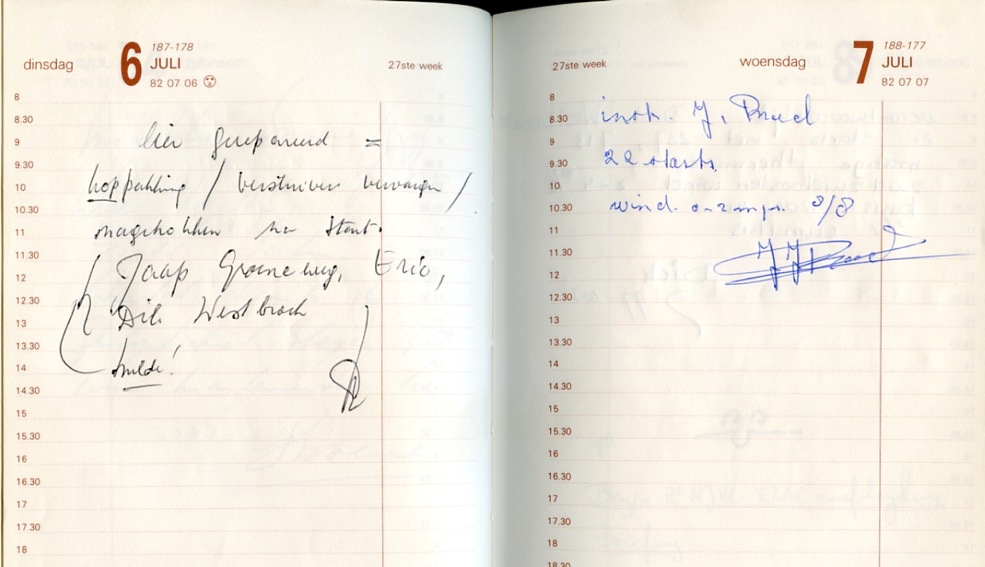 dinsdag 6 187-178 JULI 82 07 06 27ste week
8
8.30
9 lier gerepareerd =
9.30
10 koppakking / verstuiver vervangen /
10.30
11 nagetrokken na start.
11.30 Jaap Groeneweg, Eric,
12
12.30 Dik Westbroek
13
13.30
14 hulde!
14.30
15
15.30
16
16.30
17
17.30
18
27ste week woensdag 7 188-177 JULI 82 07 07
8 instr. J.
8.30
9
9.30 22 starts.
10
10.30 wind 0-2 mps. 8/8
11
11.30
12
12.30
13
13.30
14
14.30
15
15.30
16
16.30
17
17.30
18
18.30